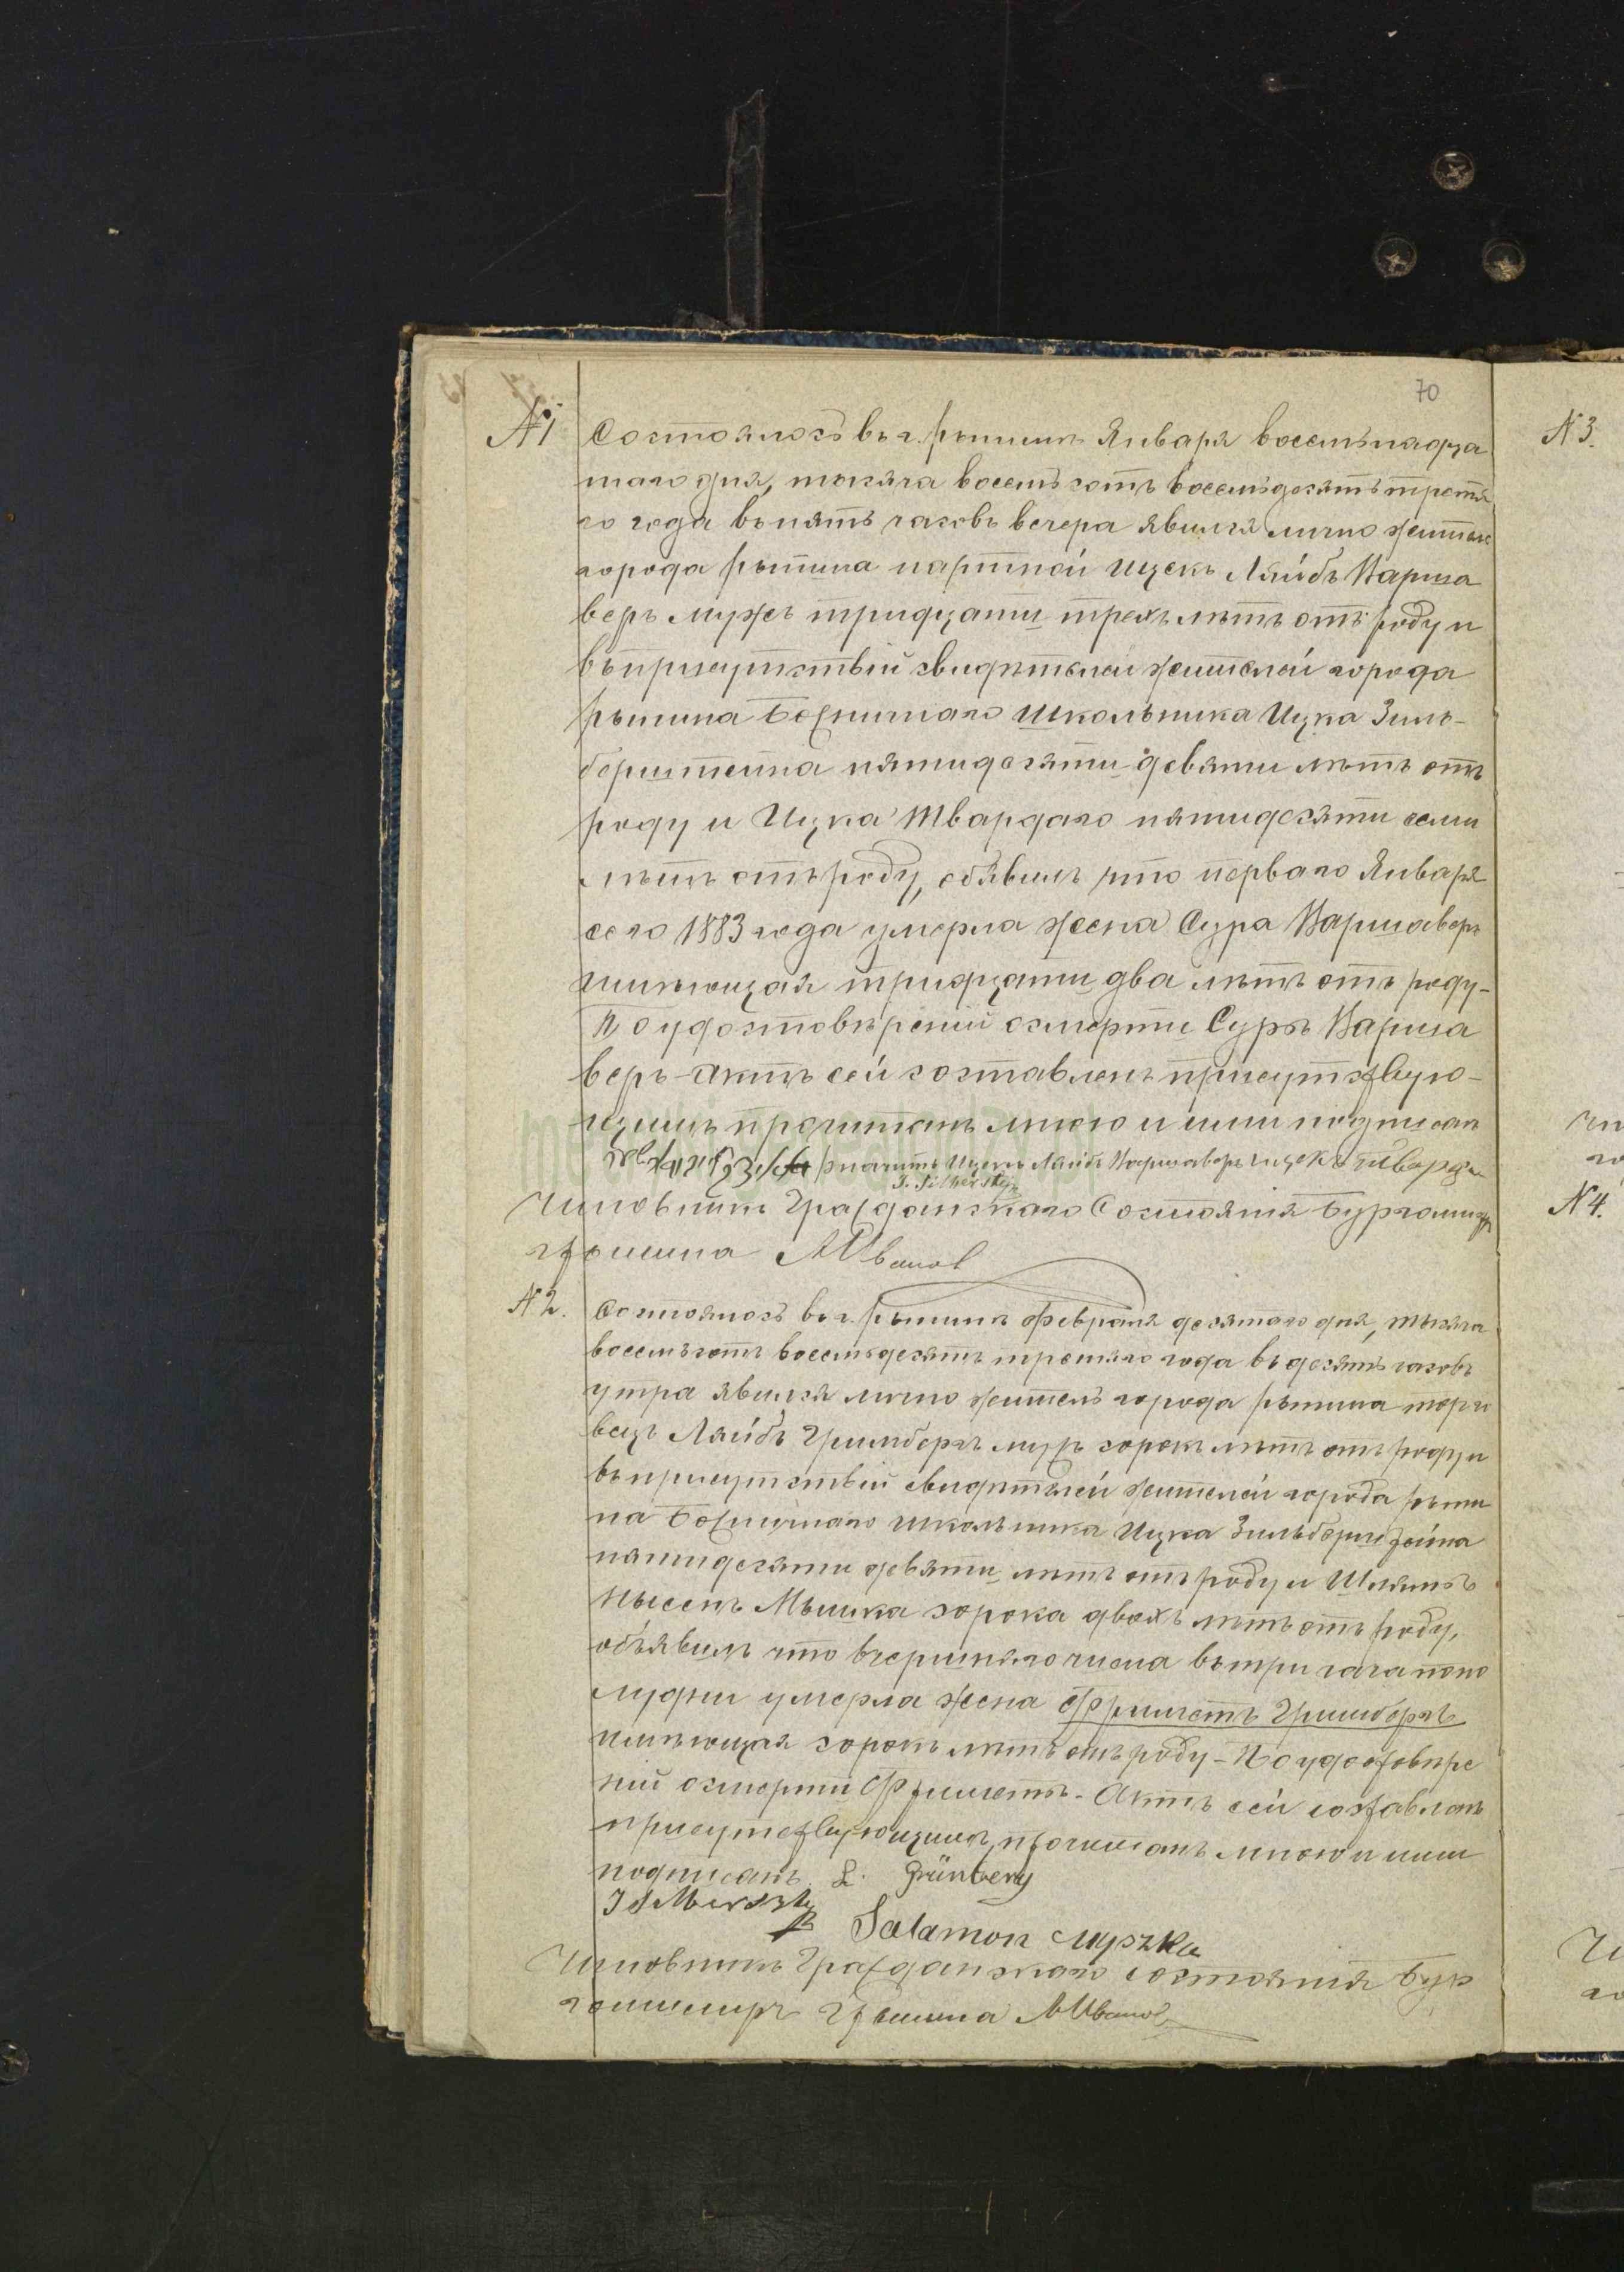 70
N1 Состоялось въ г. Рыпинѣ Января восемьнадца
таго дня, тысяча восемьсотъ восемьдесятъ третья
го года въ пять часовъ вечера явился лично житель
города Рыпина партной Ицекъ Ляйбъ Варша
веръ мужъ тридцати трехъ лѣтъ отъ роду и
въ присутствiи свидѣтелей жителей города
Рыпина Божничаго Школьника Ицка Зиль-
берштейна пятидесяти девяти лѣтъ отъ
роду и Ицка Твардаго пятидесяти семи
лѣтъ отъ роду, объявилъ что перваго Января
сего 1883 года умерла жена Сура Варшаверъ
имѣющая тридцати два лѣтъ отъ роду -
По удостовѣренiи о смерти Суры Варша
веръ - Актъ сей составленъ присутствую-
щимъ прочитанъ мною и ими подписанъ
значитъ Ицекъ Ляйбъ Варшаверъ Ицекъ Тварды
J. Silberstejn
Чиновникъ Гражданскаго Состоянiя Бургомистръ
г Рыпина АИванов
N 2. Состоялось въ г. Рыпинѣ Февраля десятаго дня, тысяча
восемьсотъ восемьдесятъ третьяго года въ десять часовъ
утра явился лично житель города Рыпина торго
вецъ Ляйбъ Гринбергъ мужъ сорокъ лѣтъ отъ роду и
въ присутствiи свидѣтелей жителей города Рыпи
на Божничнаго школьника Ицка Зильберштейна
пятидесяти девяти лѣтъ отъ роду и Шлямъ
Мышка сорока двохъ лѣтъ отъ роду,
объявилъ что вчерашняго числа въ три часа попо
лудни умерла жена Фриметъ Гринбергъ
имѣющая сорокъ лѣтъ отъ роду - По удостовѣре
нiи о смерти Фриметъ - Актъ сей составленъ
присутствующимъ, прочитанъ мною и ими
подписанъ L. Grünberg
Salamon Myszka
Чиновникъ Гражданскаго состоянiя Бур
гомистръ г Рыпина АИванов
N 3.
N 4.